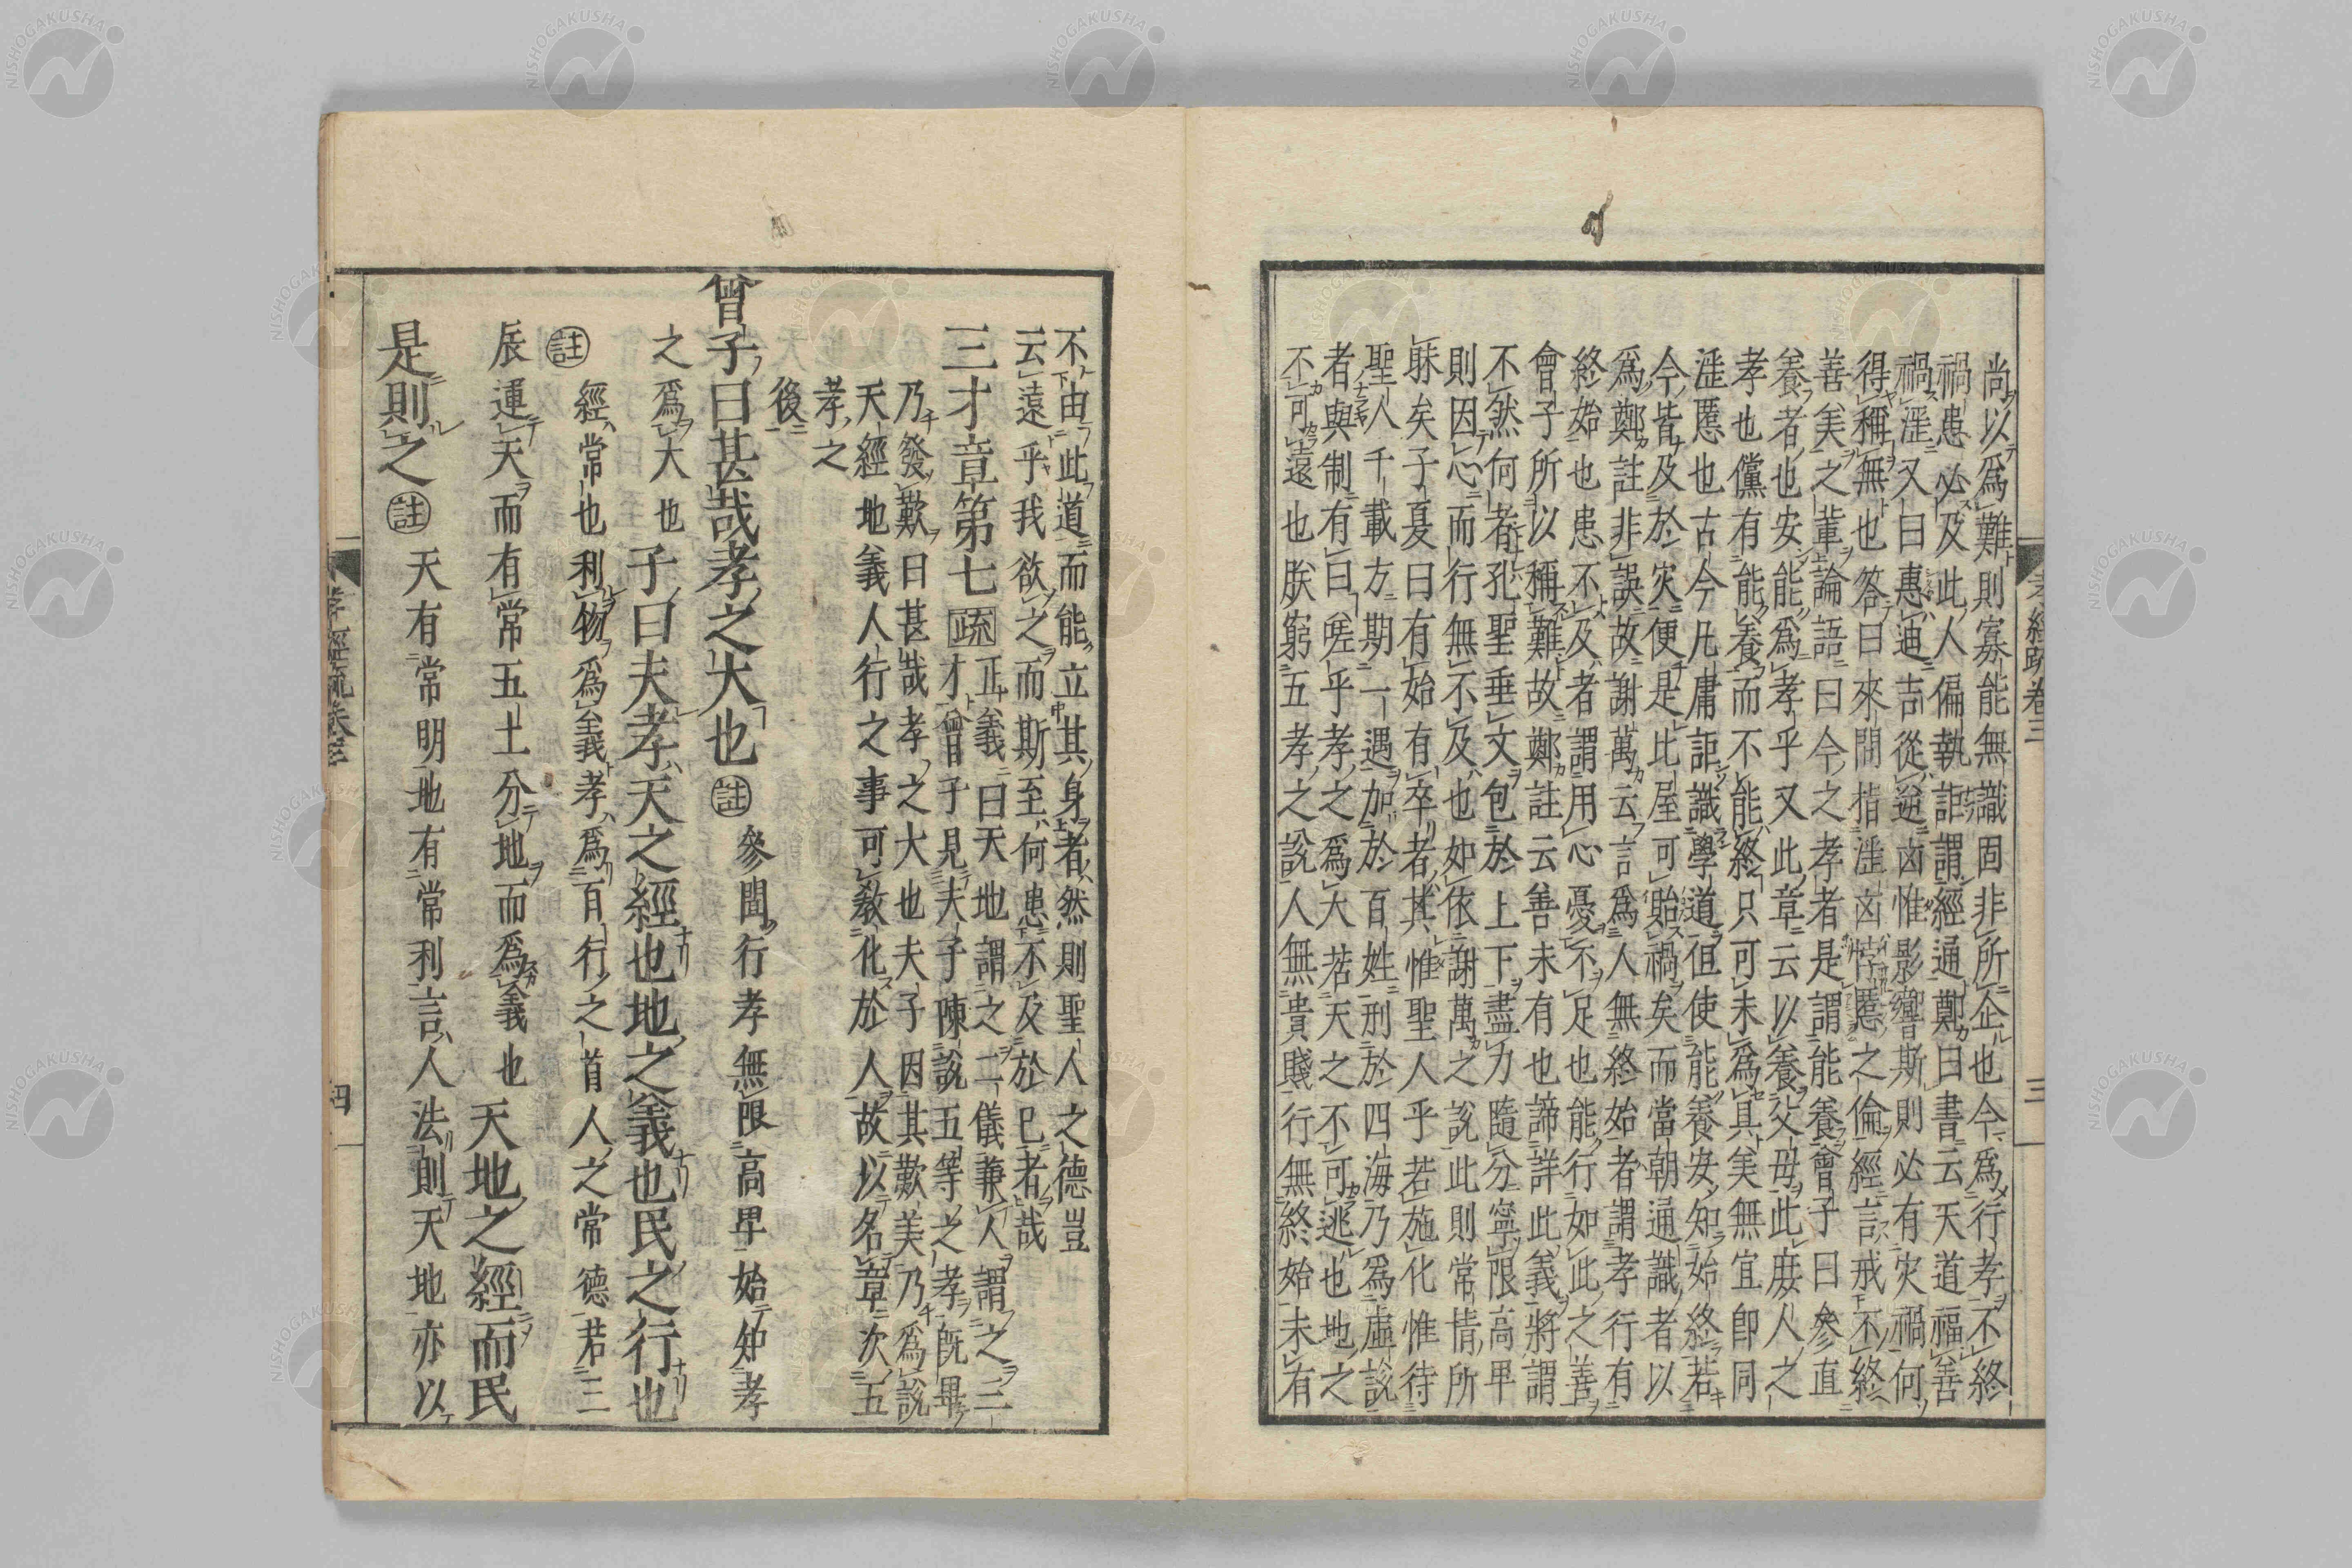 孝經疏卷三
三
尚以爲難則寡能無識固非所企也今爲行孝不終
禍患必及此人偏執詎謂經通鄭曰書云天道福善
禍淫又曰惠迪吉從逆凶惟影響斯則必有灾禍何
得稱無也答曰來問指淫凶悖慝之倫經言戒不終
善美之輩論語曰今之孝者是謂能養曾子曰參直
養者也安能爲孝乎又此章云以養父母此庶人之
孝也儻有能養而不能終只可未爲具美無宜即同
淫慝也古今凡庸詎識學道但使能養安知始終若
今皆及於灾便是比屋可貽禍矣而當朝通識者以
爲鄭註非誤故謝萬云言爲人無終始者謂孝行有
終始也患不及者謂用心憂不足也能行如此之善
曾子所以稱難故鄭註云善未有也諦詳此義將謂
不然何者孔聖垂文包於上下盡力隨分寧限高卑
則因心而行無不及也如依謝萬之說此則常情所
昧矣子夏曰有始有卒者其惟聖人乎若施化惟待
聖人千載方期一遇加於百姓刑於四海乃爲虛說
者與制有曰嗟乎孝之爲大若天之不可逃也地之
不可遠也朕窮五孝之說人無貴賤行無終始未有
不由此道而能立其身者然則聖人之德豈
云遠乎我欲之而斯至何患不及於己者哉
三才章第七 疏 正義曰天地謂之二儀兼人謂之三
才曾子見夫子陳說五等之孝既畢
乃發歎曰甚哉孝之大也夫子因其歎美乃爲說
天經地義人行之事可教化於人故以名章次五
孝之
後
曾子曰甚哉孝之大也 註 參聞行孝無限高卑始知孝
之爲大也 子曰夫孝天之經也地之義也民之行也
註 經常也利物爲義孝爲百行之首人之常德若三
辰運天而有常五土分地而爲義也 天地之經而民
是則之 註 天有常明地有常利言人法則天地亦以
孝經疏卷三
四